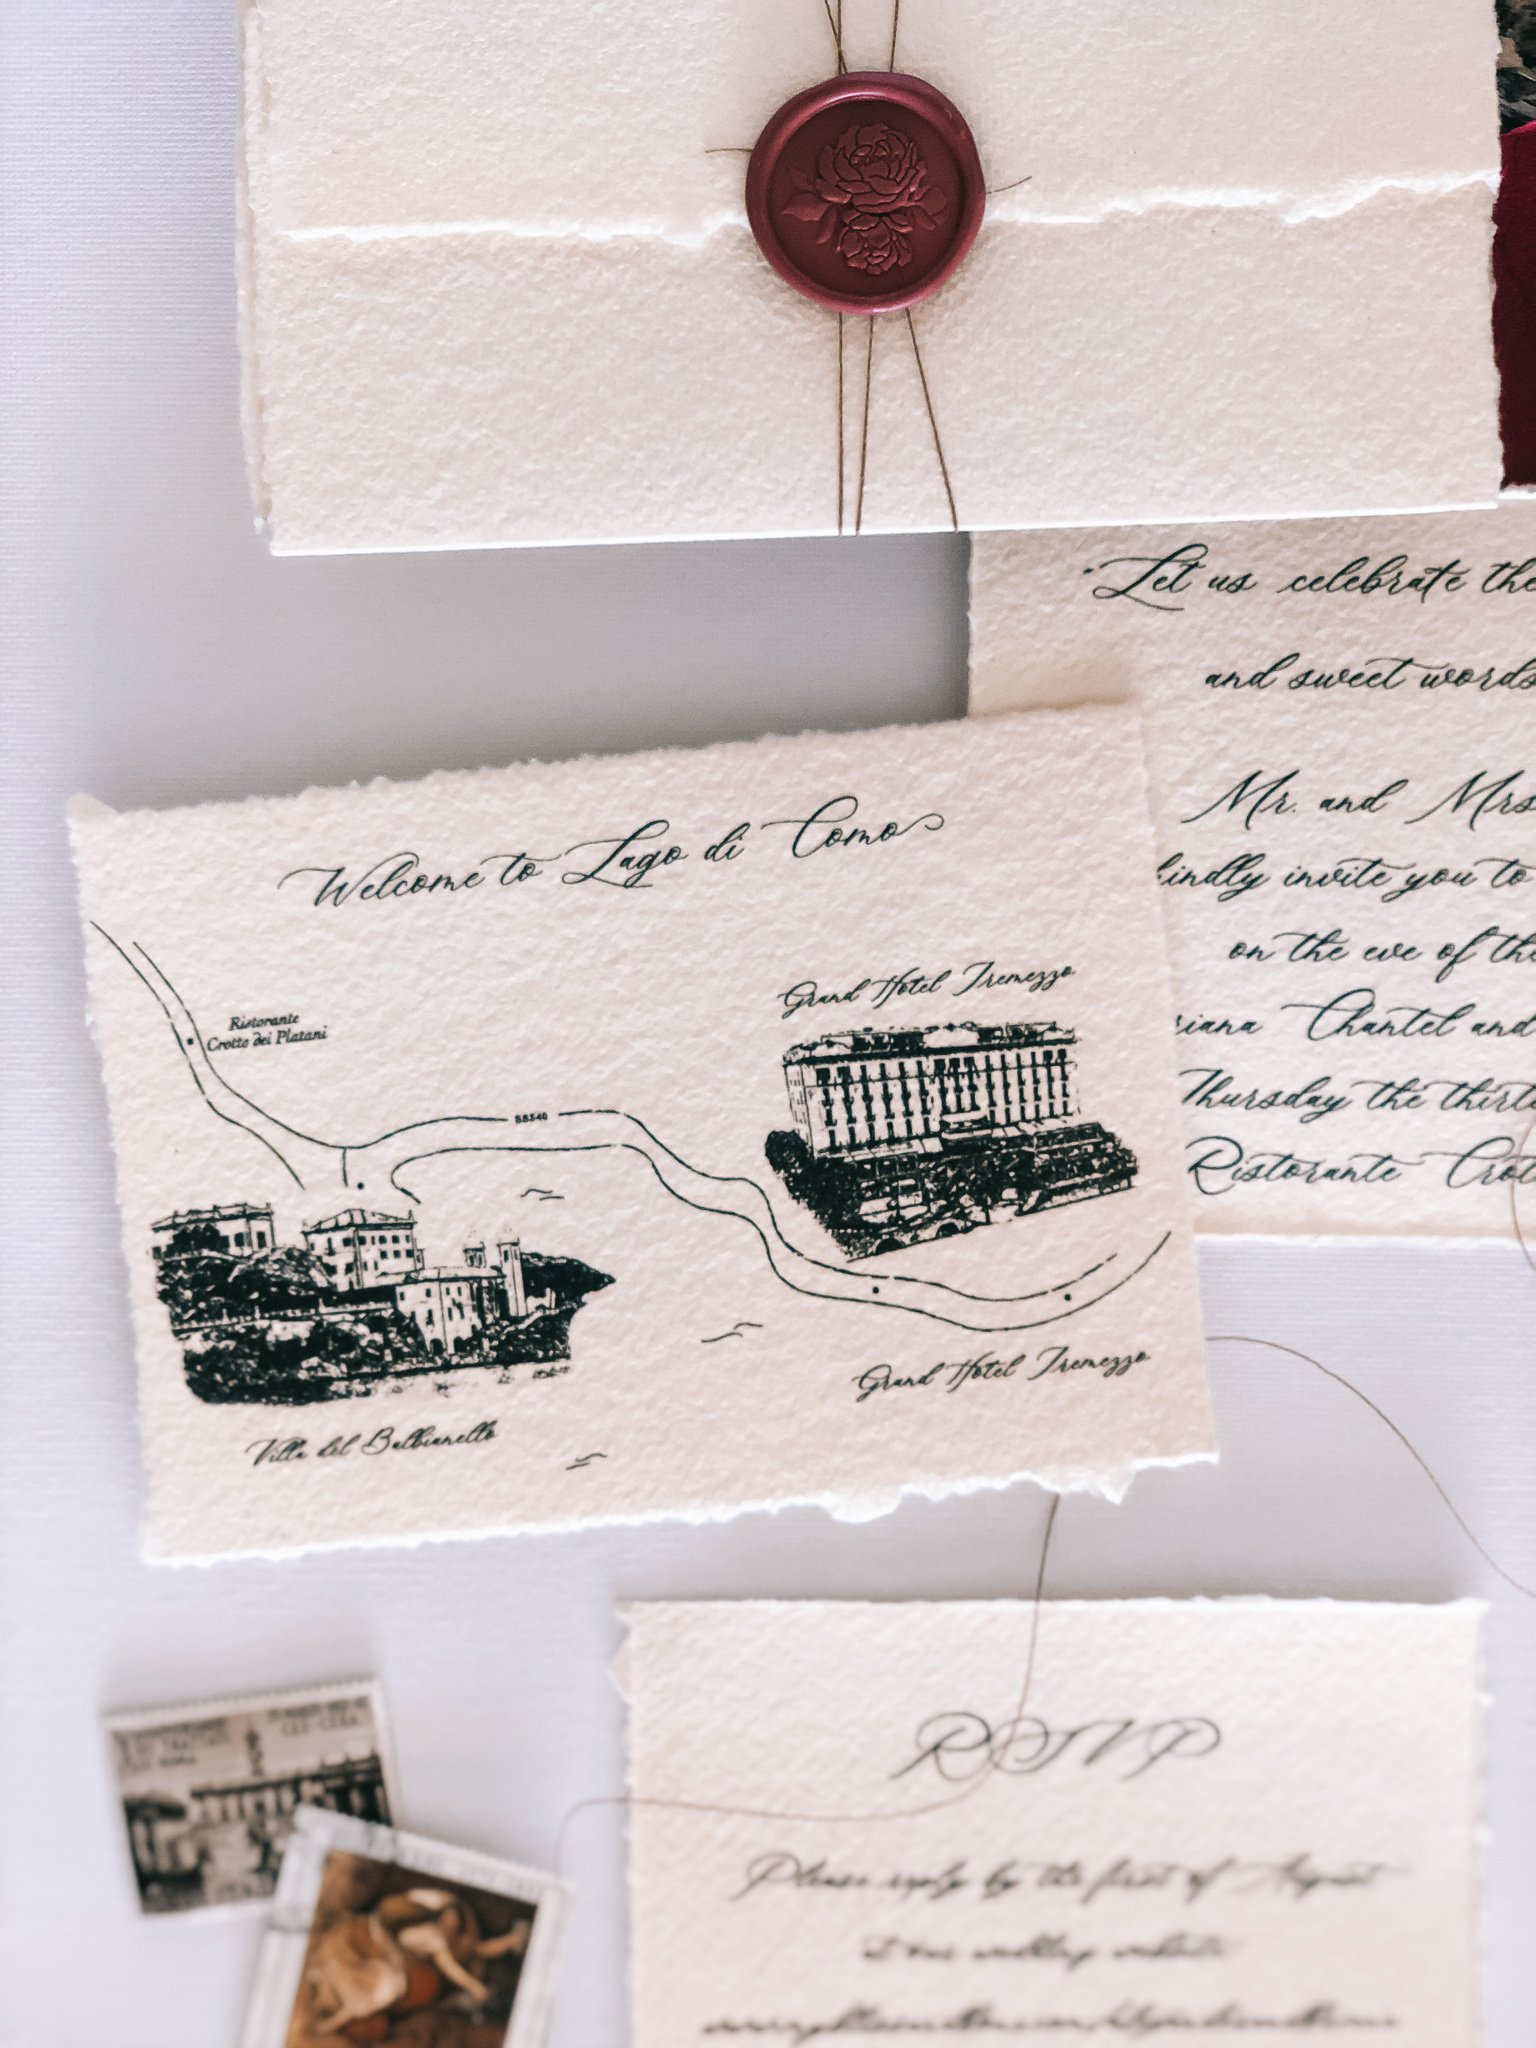 "Let us celebrate the
and sweet words
Mr. and Mrs
kindly invite you to
on the eve of the
riana Chantel and
Thursday the thirte
Ristorante Crot
Welcome to Lago di Como
Grand Hotel Tremezzo
Ristorante
Crotto dei Platani
SS340
Grand Hotel Tremezzo
Villa del Balbianello
RSVP
Please reply by the first of August